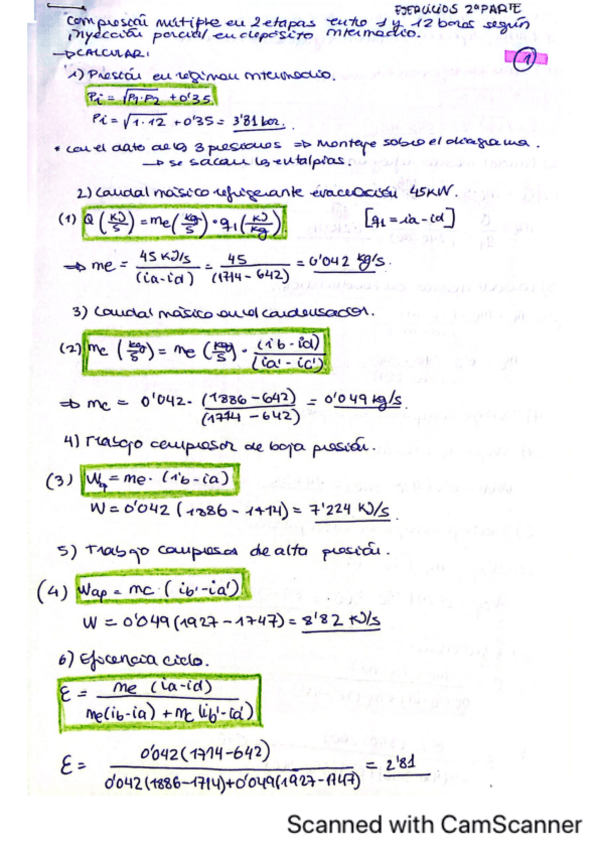 EJERCICIOS 2ª PARTE
Compresión múltiple en 2 etapas entre 1 y 12 bares según
inyección parcial en depósito intermedio.
→ CALCULAR:
1
1) Presión en régimen intermedio.
Pi = √P1·P2 + 0'35
Pi = √1·12 + 0'35 = 3'81 bar.
* con el dato de las 3 presiones ⇒ Montaje sobre el diagrama.
→ se sacan las entalpías.
2) Caudal másico refrigerante evacuación 45KW.
(1) Q (KJ/s) = me (kg/s) · q1 (KJ/kg) [q1 = ia - id]
⇒ me = 45 KJ/s / (ia-id) = 45 / (1714 - 642) = 0'042 kg/s.
3) Caudal másico en el condensador.
(2) mc (kg/s) = me (kg/s) · (ib - id) / (ia' - ic')
⇒ mc = 0'042 · (1886 - 642) / (1714 - 642) = 0'049 kg/s.
4) Trabajo compresor de baja presión.
(3) W = me · (ib - ia)
W = 0'042 (1886 - 1714) = 7'224 KJ/s.
5) Trabajo compresor de alta presión.
(4) Wap = mc · (ib' - ia')
W = 0'049 (1927 - 1747) = 8'82 KJ/s
6) Eficiencia ciclo.
ε = me (ia-id) / me(ib-ia) + mc(ib'-ia')
ε = 0'042 (1714-642) / 0'042 (1886-1714) + 0'049 (1927-1747) = 2'81
Scanned with CamScanner